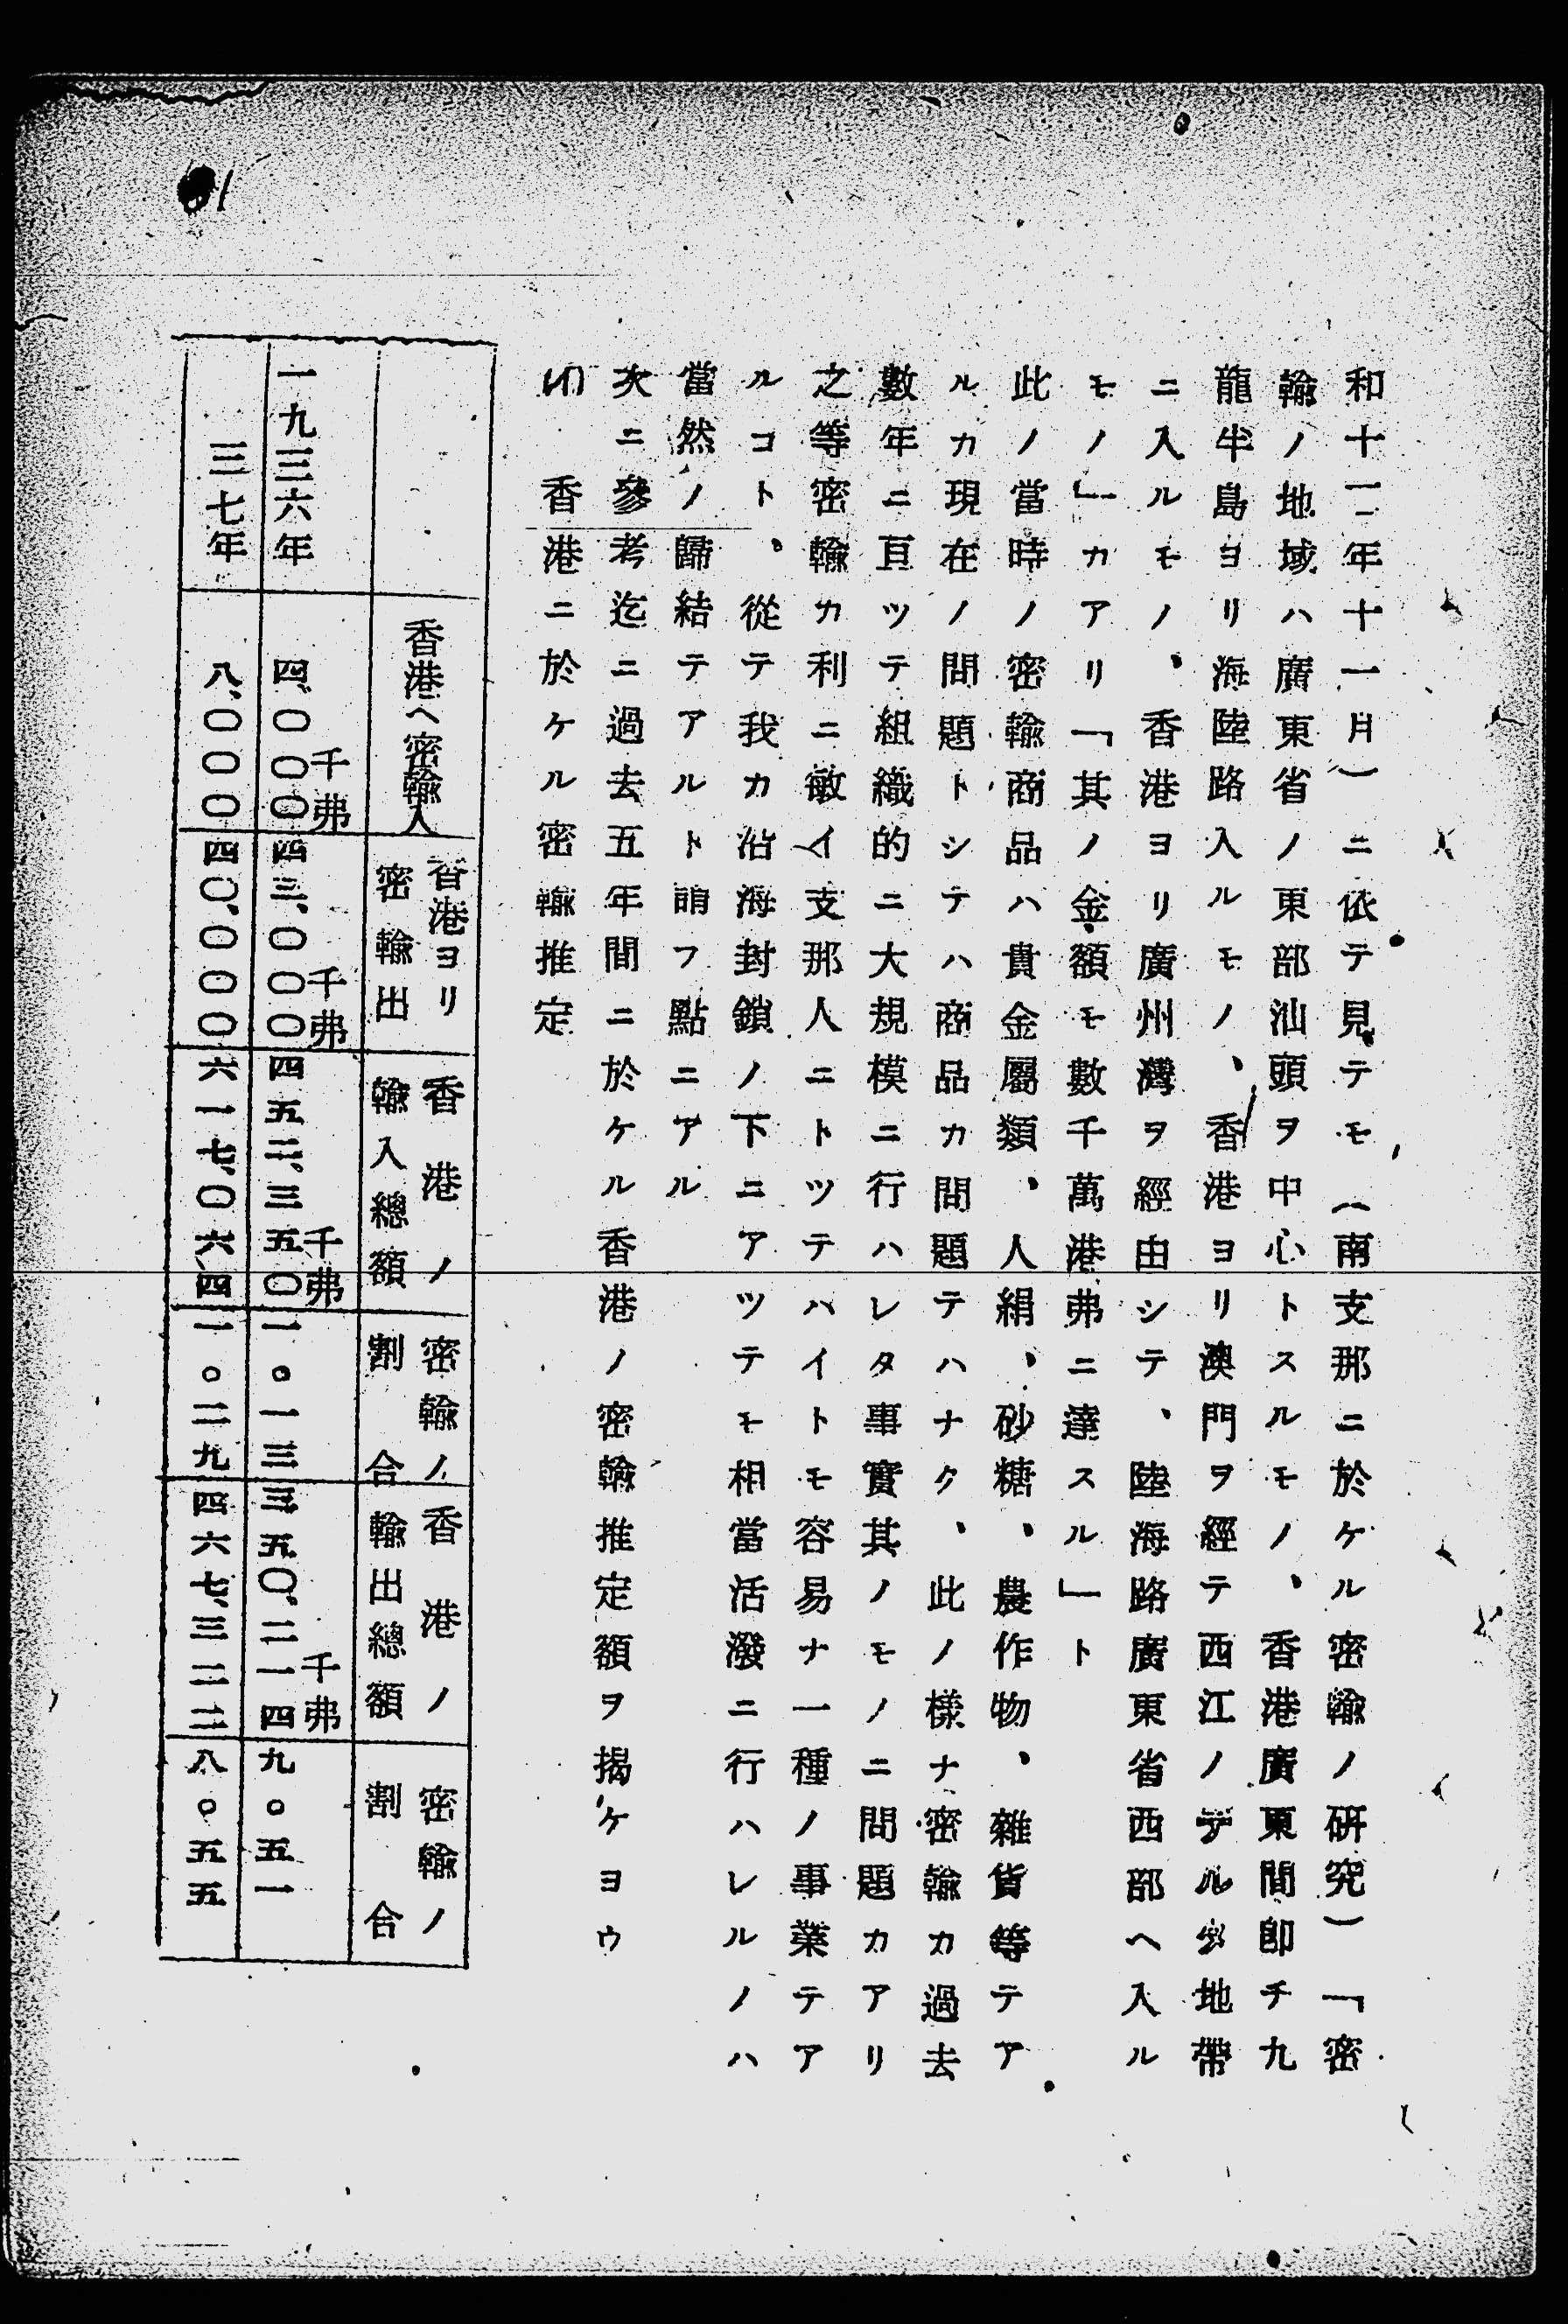 和十二年十一月)ニ依テ見テモ(南支那ニ於ケル密輸ノ研究)「密
輸ノ地域ハ廣東省ノ東部汕頭ヲ中心トスルモノ、香港廣東間卽チ九
龍半島ヨリ海陸路入ルモノ、香港ヨリ澳門ヲ經テ西江ノデルタ地帶
ニ入ルモノ、香港ヨリ廣州灣ヲ經由シテ、陸海路廣東省西部ヘ入ル
モノ」カアリ「其ノ金額モ數千萬港弗ニ達スル」ト
此ノ當時ノ密輸商品ハ貴金屬類、人絹、砂糖、農作物、雜貨等テア
ルカ現在ノ問題トシテハ商品カ問題テハナク、此ノ樣ナ密輸カ過去
數年ニ亘ツテ組織的ニ大規模ニ行ハレタ事實其ノモノニ問題カアリ
之等密輸カ利ニ敏イ支那人ニトツテハイトモ容易ナ一種ノ事業テア
ルコト、從テ我カ沿海封鎖ノ下ニアツテモ相當活潑ニ行ハレルノハ
當然ノ歸結テアルト謂フ點ニアル
次ニ參考迄ニ過去五年間ニ於ケル香港ノ密輸推定額ヲ揭ケヨウ
(イ) 香港ニ於ケル密輸推定
香港ヘ密輸入 香港ヨリ密輸出 香港ノ輸入總額 密輸ノ割合 香港ノ輸出總額 密輸ノ割合
一九三六年 四、〇〇〇千弗 四三、〇〇〇千弗 四五二、三五〇千弗 一。一三 三五〇、二一四千弗 九。五一
三七年 八、〇〇〇 四〇、〇〇〇 六一七、〇六四 一。二九 四六七、三二二 八。五五